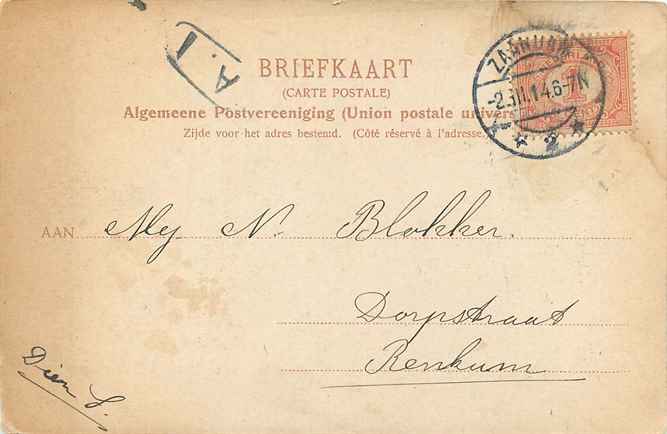 A.1
BRIEFKAART
(CARTE POSTALE)
Algemeene Postvereeniging (Union postale univers
Zijde voor het adres bestemd. (Côté réservé à l'adresse.
ZAANDAM
6-7N
2
AAN Mej N. Blokker.
Dorpstraat
Renkum
Dien S.